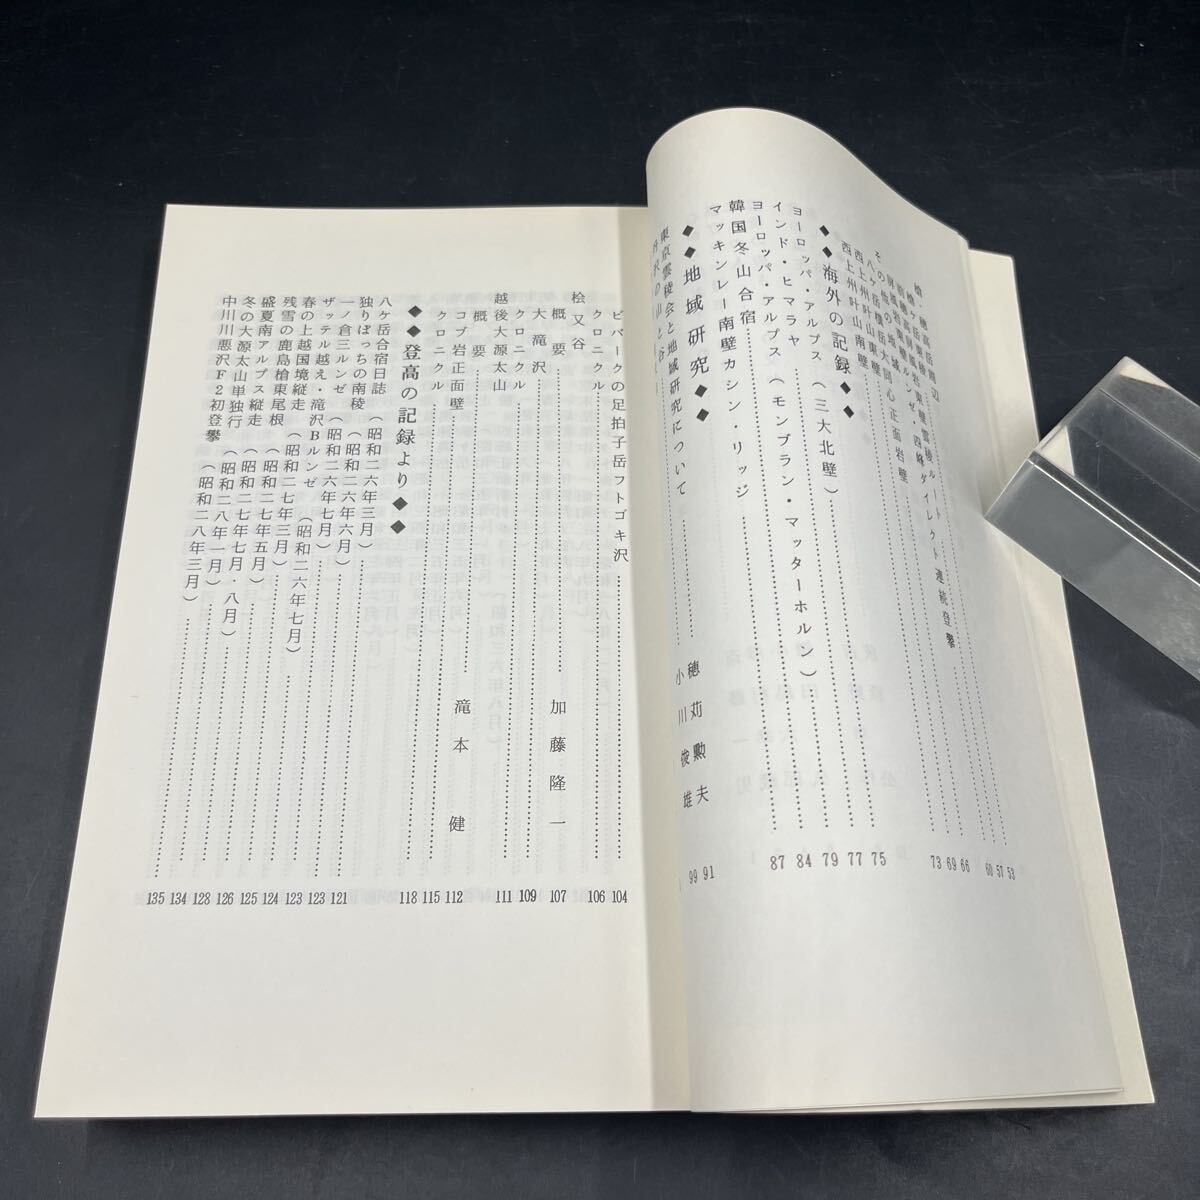 槍・穂高岳周辺
槍ヶ岳東稜 53
前穂高屏風岩東壁雲稜ルート 57
屏風岩東壁ルンゼ・四峰ダイレクト連続登攀 60
その他の地域
八ヶ岳横岳大同心正面岩壁 66
西上州叶山東壁 69
西上州叶山南壁 73
◆◆海外の記録◆◆
ヨーロッパ・アルプス(三大北壁) 75
インド・ヒマラヤ 77
ヨーロッパ・アルプス(モンブラン・マッターホルン) 79
韓国冬山合宿 84
マッキンレー南壁カシン・リッジ 87
◆◆地域研究◆◆
東京雲稜会と地域研究について 穂苅勲夫 91
小川俊雄 99
ビバークの足拍子岳フトゴキ沢 104
クロニクル 106
桧又谷
概要 加藤隆一 107
大滝沢 109
クロニクル 111
越後大源太山
概要 滝本健 112
コブ岩正面壁 115
クロニクル 118
◆◆登高の記録より◆◆
八ケ岳合宿日誌(昭和二六年三月) 121
独りぼっちの南稜(昭和二六年六月) 123
一ノ倉三ルンゼ(昭和二六年七月) 123
ザッテル越え・滝沢Bルンゼ(昭和二六年七月) 124
春の上越国境縦走(昭和二七年三月) 125
残雪の鹿島槍東尾根(昭和二七年五月) 126
盛夏南アルプス縦走(昭和二七年七月・八月) 128
冬の大源太山単独行(昭和二八年一月) 134
中川川悪沢F2初登攀(昭和二八年三月) 135